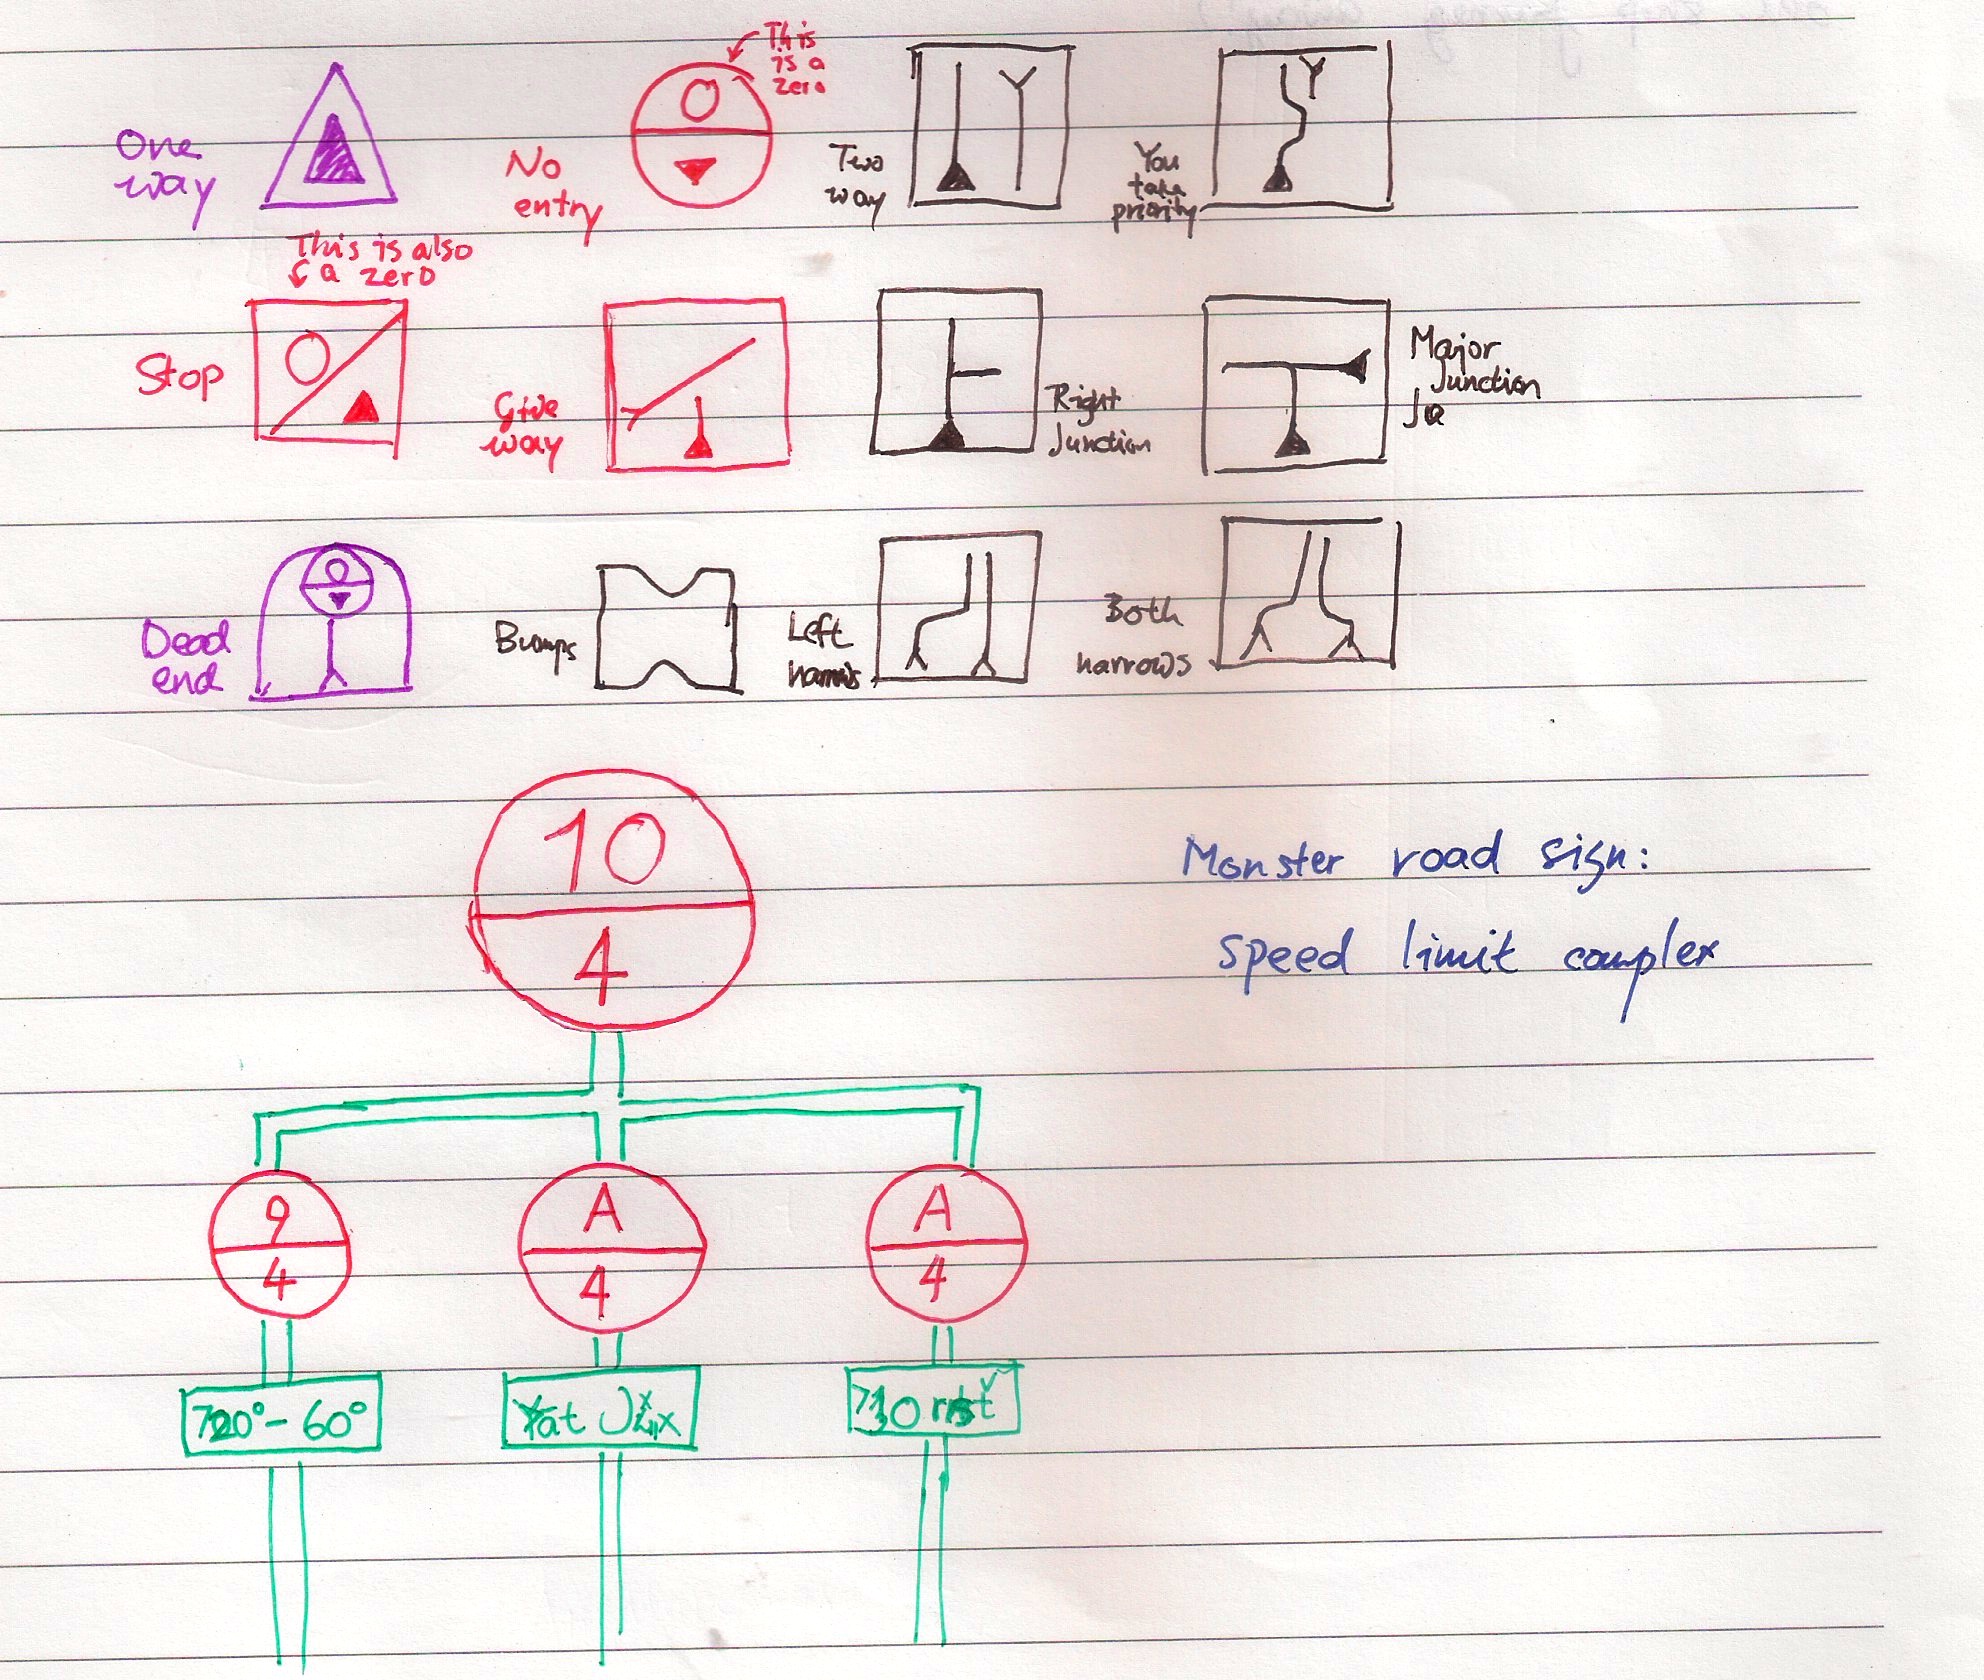 This
is a
zero
One
way
No
entry
O
Two
way
You
take
priority
This is also
a zero
Stop
O
Give
way
Right
Junction
Major
Junction
Dead
end
O
Bumps
Left
narrows
Both
narrows
10
4
Monster road sign:
speed limit complex
9
4
A
4
A
4